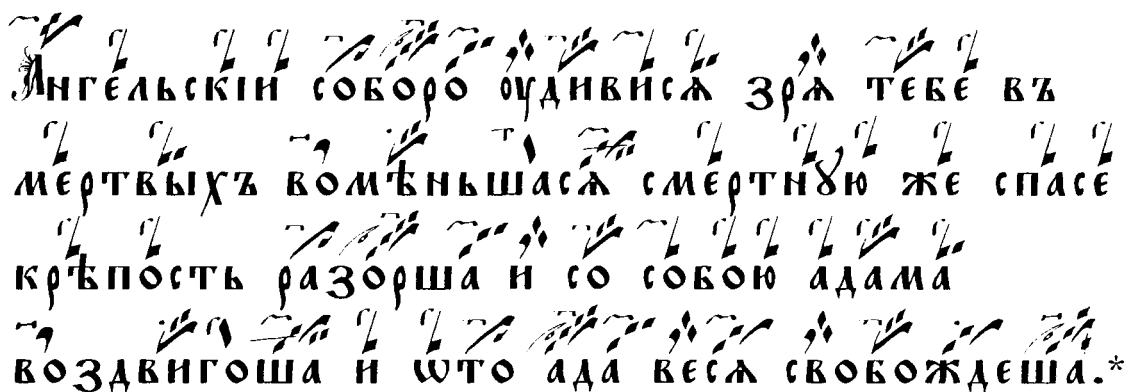 Ангельскіи соборо оудивисѧ зрѧ тебе въ
мертвыхъ вомѣньшасѧ смертнꙋю же спасе
крѣпость разорша и со собою адама
воздвигоша и ѡто ада весѧ свобождеша.*